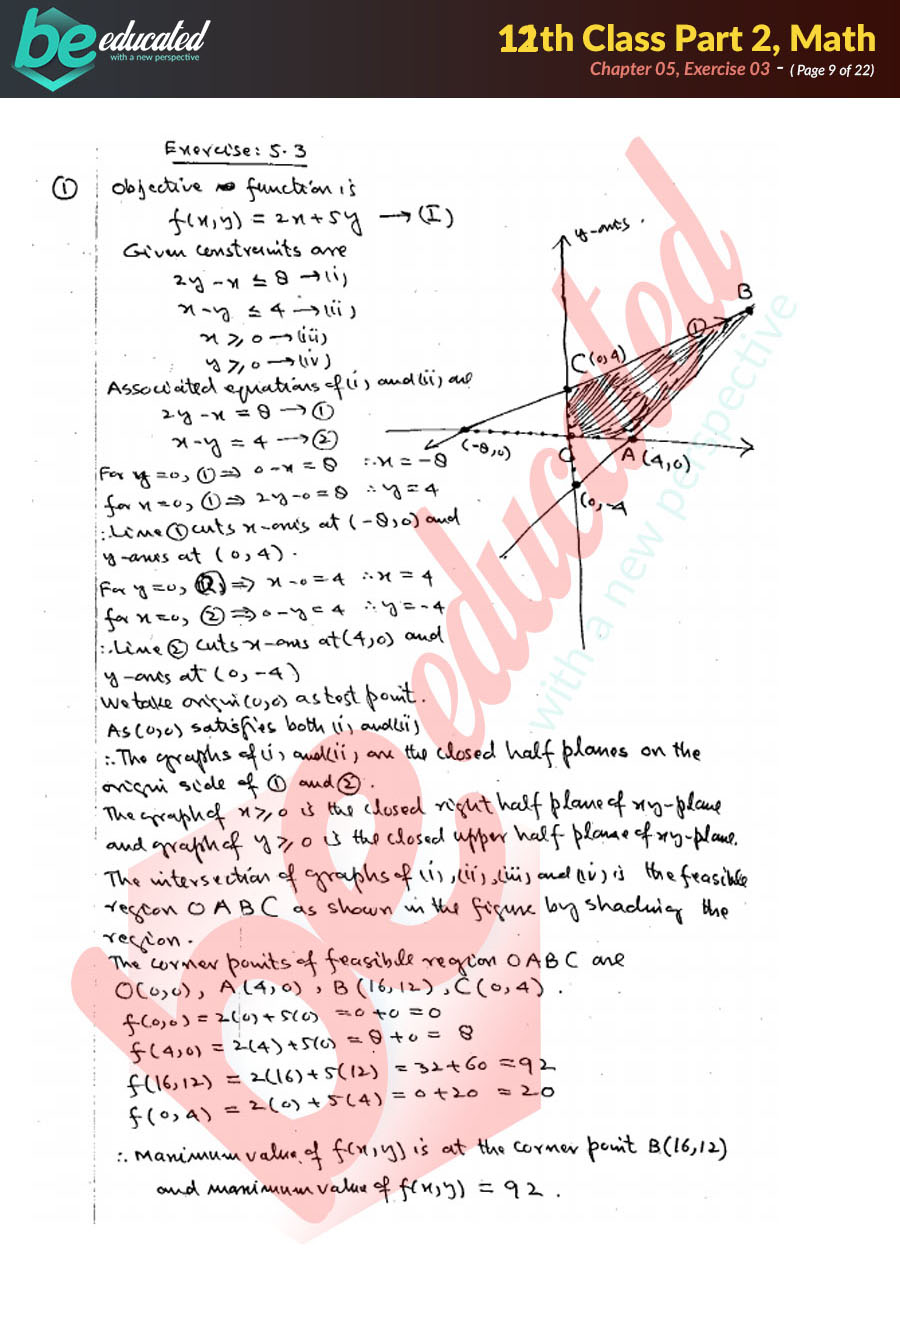 be educated
with a new perspective
12th Class Part 2, Math
Chapter 05, Exercise 03 - ( Page 9 of 22)
Exercise: 5.3
① Objective function is
f(x,y) = 2x+5y → (I)
Given constraints are
2y-x ≤ 8 → (i)
x-y ≤ 4 → (ii)
x ≥ 0 → (iii)
y ≥ 0 → (iv)
Associated equations of (i) and (ii) are
2y-x = 8 → ①
x-y = 4 → ②
For y=0, ① ⇒ 0-x = 8 ∴ x = -8
for x=0, ① ⇒ 2y-0 = 8 ∴ y = 4
∴ Line ① cuts x-axis at (-8,0) and
y-axis at (0,4).
For y=0, ② ⇒ x-0 = 4 ∴ x = 4
for x=0, ② ⇒ 0-y = 4 ∴ y = -4
∴ Line ② cuts x-axis at (4,0) and
y-axis at (0,-4)
We take origin (0,0) as test point.
As (0,0) satisfies both (i) and (ii)
∴ The graphs of (i) and (ii) are the closed half planes on the
origin side of ① and ②.
The graph of x ≥ 0 is the closed right half plane of xy-plane
and graph of y ≥ 0 is the closed upper half plane of xy-plane.
The intersection of graphs of (i), (ii), (iii) and (iv) is the feasible
region OABC as shown in the figure by shading the
region.
The corner points of feasible region OABC are
O(0,0), A(4,0), B(16,12), C(0,4).
f(0,0) = 2(0)+5(0) = 0+0 = 0
f(4,0) = 2(4)+5(0) = 8+0 = 8
f(16,12) = 2(16)+5(12) = 32+60 = 92
f(0,4) = 2(0)+5(4) = 0+20 = 20
∴ Maximum value of f(x,y) is at the corner point B(16,12)
and maximum value of f(x,y) = 92.
y-axis.
B
①
C(0,4)
(-8,0)
O
A(4,0)
(0,-4
be educated
with a new perspective